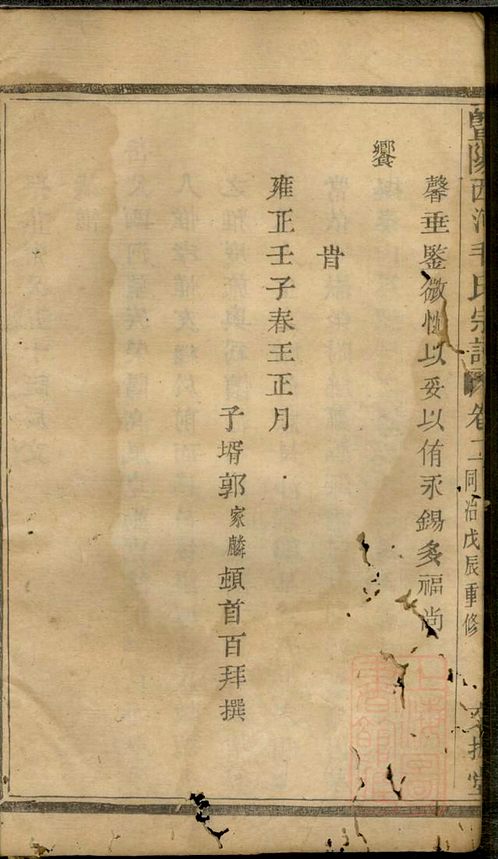 暨陽西河毛氏宗譜 卷二 同治戊辰重修
馨垂鑒微忱以妥以侑永錫多福尚
饗
旹
雍正壬子春王正月
子壻郭家麟頓首百拜撰